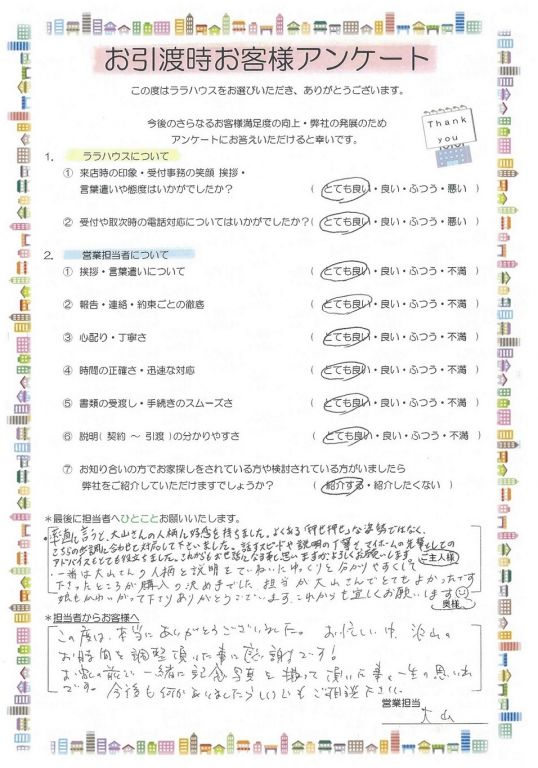 お引渡時お客様アンケート
この度はララハウスをお選びいただき、ありがとうございます。
今後のさらなるお客様満足度の向上・弊社の発展のため
アンケートにお答えいただけると幸いです。
Thank
you
1. ララハウスについて
① 来店時の印象・受付事務の笑顔 挨拶・
言葉遣いや態度はいかがでしたか? ( とても良い・良い・ふつう・悪い )
② 受付や取次時の電話対応についてはいかがでしたか?( とても良い・良い・ふつう・悪い )
2. 営業担当者について
① 挨拶・言葉遣いについて ( とても良い・良い・ふつう・不満 )
② 報告・連絡・約束ごとの徹底 ( とても良い・良い・ふつう・不満 )
③ 心配り・丁寧さ ( とても良い・良い・ふつう・不満 )
④ 時間の正確さ・迅速な対応 ( とても良い・良い・ふつう・不満 )
⑤ 書類の受渡し・手続きのスムーズさ ( とても良い・良い・ふつう・不満 )
⑥ 説明( 契約 ～ 引渡 )の分かりやすさ ( とても良い・良い・ふつう・不満 )
⑦ お知り合いの方でお家探しをされている方や検討されている方がいましたら
弊社をご紹介していただけますでしょうか? ( 紹介する・紹介したくない )
*最後に担当者へひとことお願いいたします。
・率直に言うと、大山さんの人柄に好感を持ちました。よくある「押せ押せ」な姿勢ではなく、
こちらの歩調に合わせて対応して下さいました。話すスピードや説明の丁寧さ、マイホームの先輩としての
アドバイスもとても役立ちました。これからもお世話になる事と思いますがよろしくお願いします。
ご主人様
・一番は大山さんの人柄と説明をていねいにゆっくりと分かりやすくして
下さったところが購入の決め手でした。担当が大山さんでとてもよかったです
娘もかわいがって下さりありがとうございます。これからも宜しくお願いします
奥様
*担当者からお客様へ
この度は、本当にありがとうございました。お忙しい中、沢山の
お時間を調整頂いた事に感謝です!
お家の前で一緒に記念写真を撮って頂いた事も一生の思い出
です。今後も何かありましたらいつでもご相談下さい。
営業担当
大山